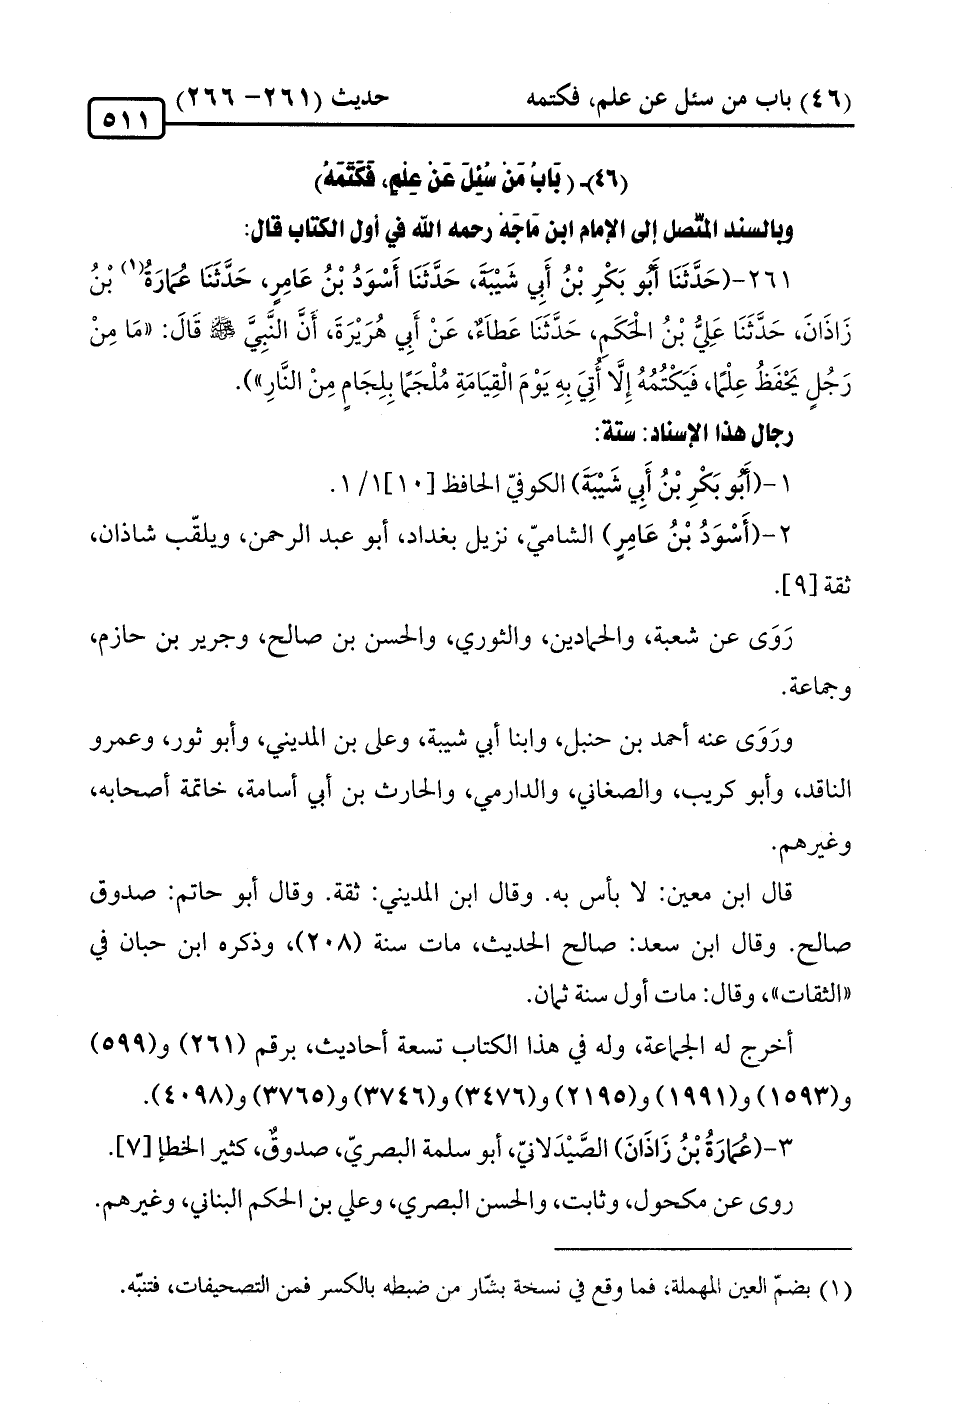 (٤٦) باب من سئل عن علم، فكتمه حديث (٢٦١- ٢٦٦)
٥١١
(٤٦)- (بَابُ مَنْ سُئِلَ عَنْ عِلْمٍ، فَكَتَمَهُ)
وبالسند المتّصل إلى الإمام ابن مَاجَهْ رحمه الله في أول الكتاب قال:
٢٦١-(حَدَّثَنَا أَبُو بَكْرِ بْنُ أَبِي شَيْبَةَ، حَدَّثَنَا أَسْوَدُ بْنُ عَامِرٍ، حَدَّثَنَا عُمَارَةُ(١) بْنُ
زَاذَانَ، حَدَّثَنَا عَلِيُّ بْنُ الْحَكَمِ، حَدَّثَنَا عَطَاءٌ، عَنْ أَبِي هُرَيْرَةَ، أَنَّ النَّبِيَّ ﷺ قَالَ: «مَا مِنْ
رَجُلٍ يَحْفَظُ عِلْمًا، فَيَكْتُمُهُ إِلَّا أُتِيَ بِهِ يَوْمَ الْقِيَامَةِ مُلْجَمًا بِلِجَامٍ مِنْ النَّارِ»).
رجال هذا الإسناد: ستة:
١-(أَبُو بَكْرِ بْنُ أَبِي شَيْبَةَ) الكوفيّ الحافظ [١٠]١/ ١.
٢-(أَسْوَدُ بْنُ عَامِرٍ) الشاميّ، نزيل بغداد، أبو عبد الرحمن، ويلقّب شاذان،
ثقة [٩].
رَوَى عن شعبة، والحمادين، والثوري، والحسن بن صالح، وجرير بن حازم،
وجماعة.
ورَوَى عنه أحمد بن حنبل، وابنا أبي شيبة، وعلى بن المديني، وأبو ثور، وعمرو
الناقد، وأبو كريب، والصغاني، والدارمي، والحارث بن أبي أسامة، خاتمة أصحابه،
وغيرهم.
قال ابن معين: لا بأس به. وقال ابن المديني: ثقة. وقال أبو حاتم: صدوق
صالح. وقال ابن سعد: صالح الحديث، مات سنة (٢٠٨)، وذكره ابن حبان في
«الثقات»، وقال: مات أول سنة ثمان.
أخرج له الجماعة، وله في هذا الكتاب تسعة أحاديث، برقم (٢٦١) و(٥٩٩)
و(١٥٩٣) و(١٩٩١) و(٢١٩٥) و(٣٤٧٦) و(٣٧٤٦) و(٣٧٦٥) و(٤٠٩٨).
٣-(عُمَارَةُ بْنُ زَاذَانَ) الصَّيْدَلانيّ، أبو سلمة البصريّ، صدوقٌ، كثير الخطإ [٧].
روى عن مكحول، وثابت، والحسن البصري، وعلي بن الحكم البناني، وغيرهم.
(١) بضمّ العين المهملة، فما وقع في نسخة بشّار من ضبطه بالكسر فمن التصحيفات، فتنبّه.